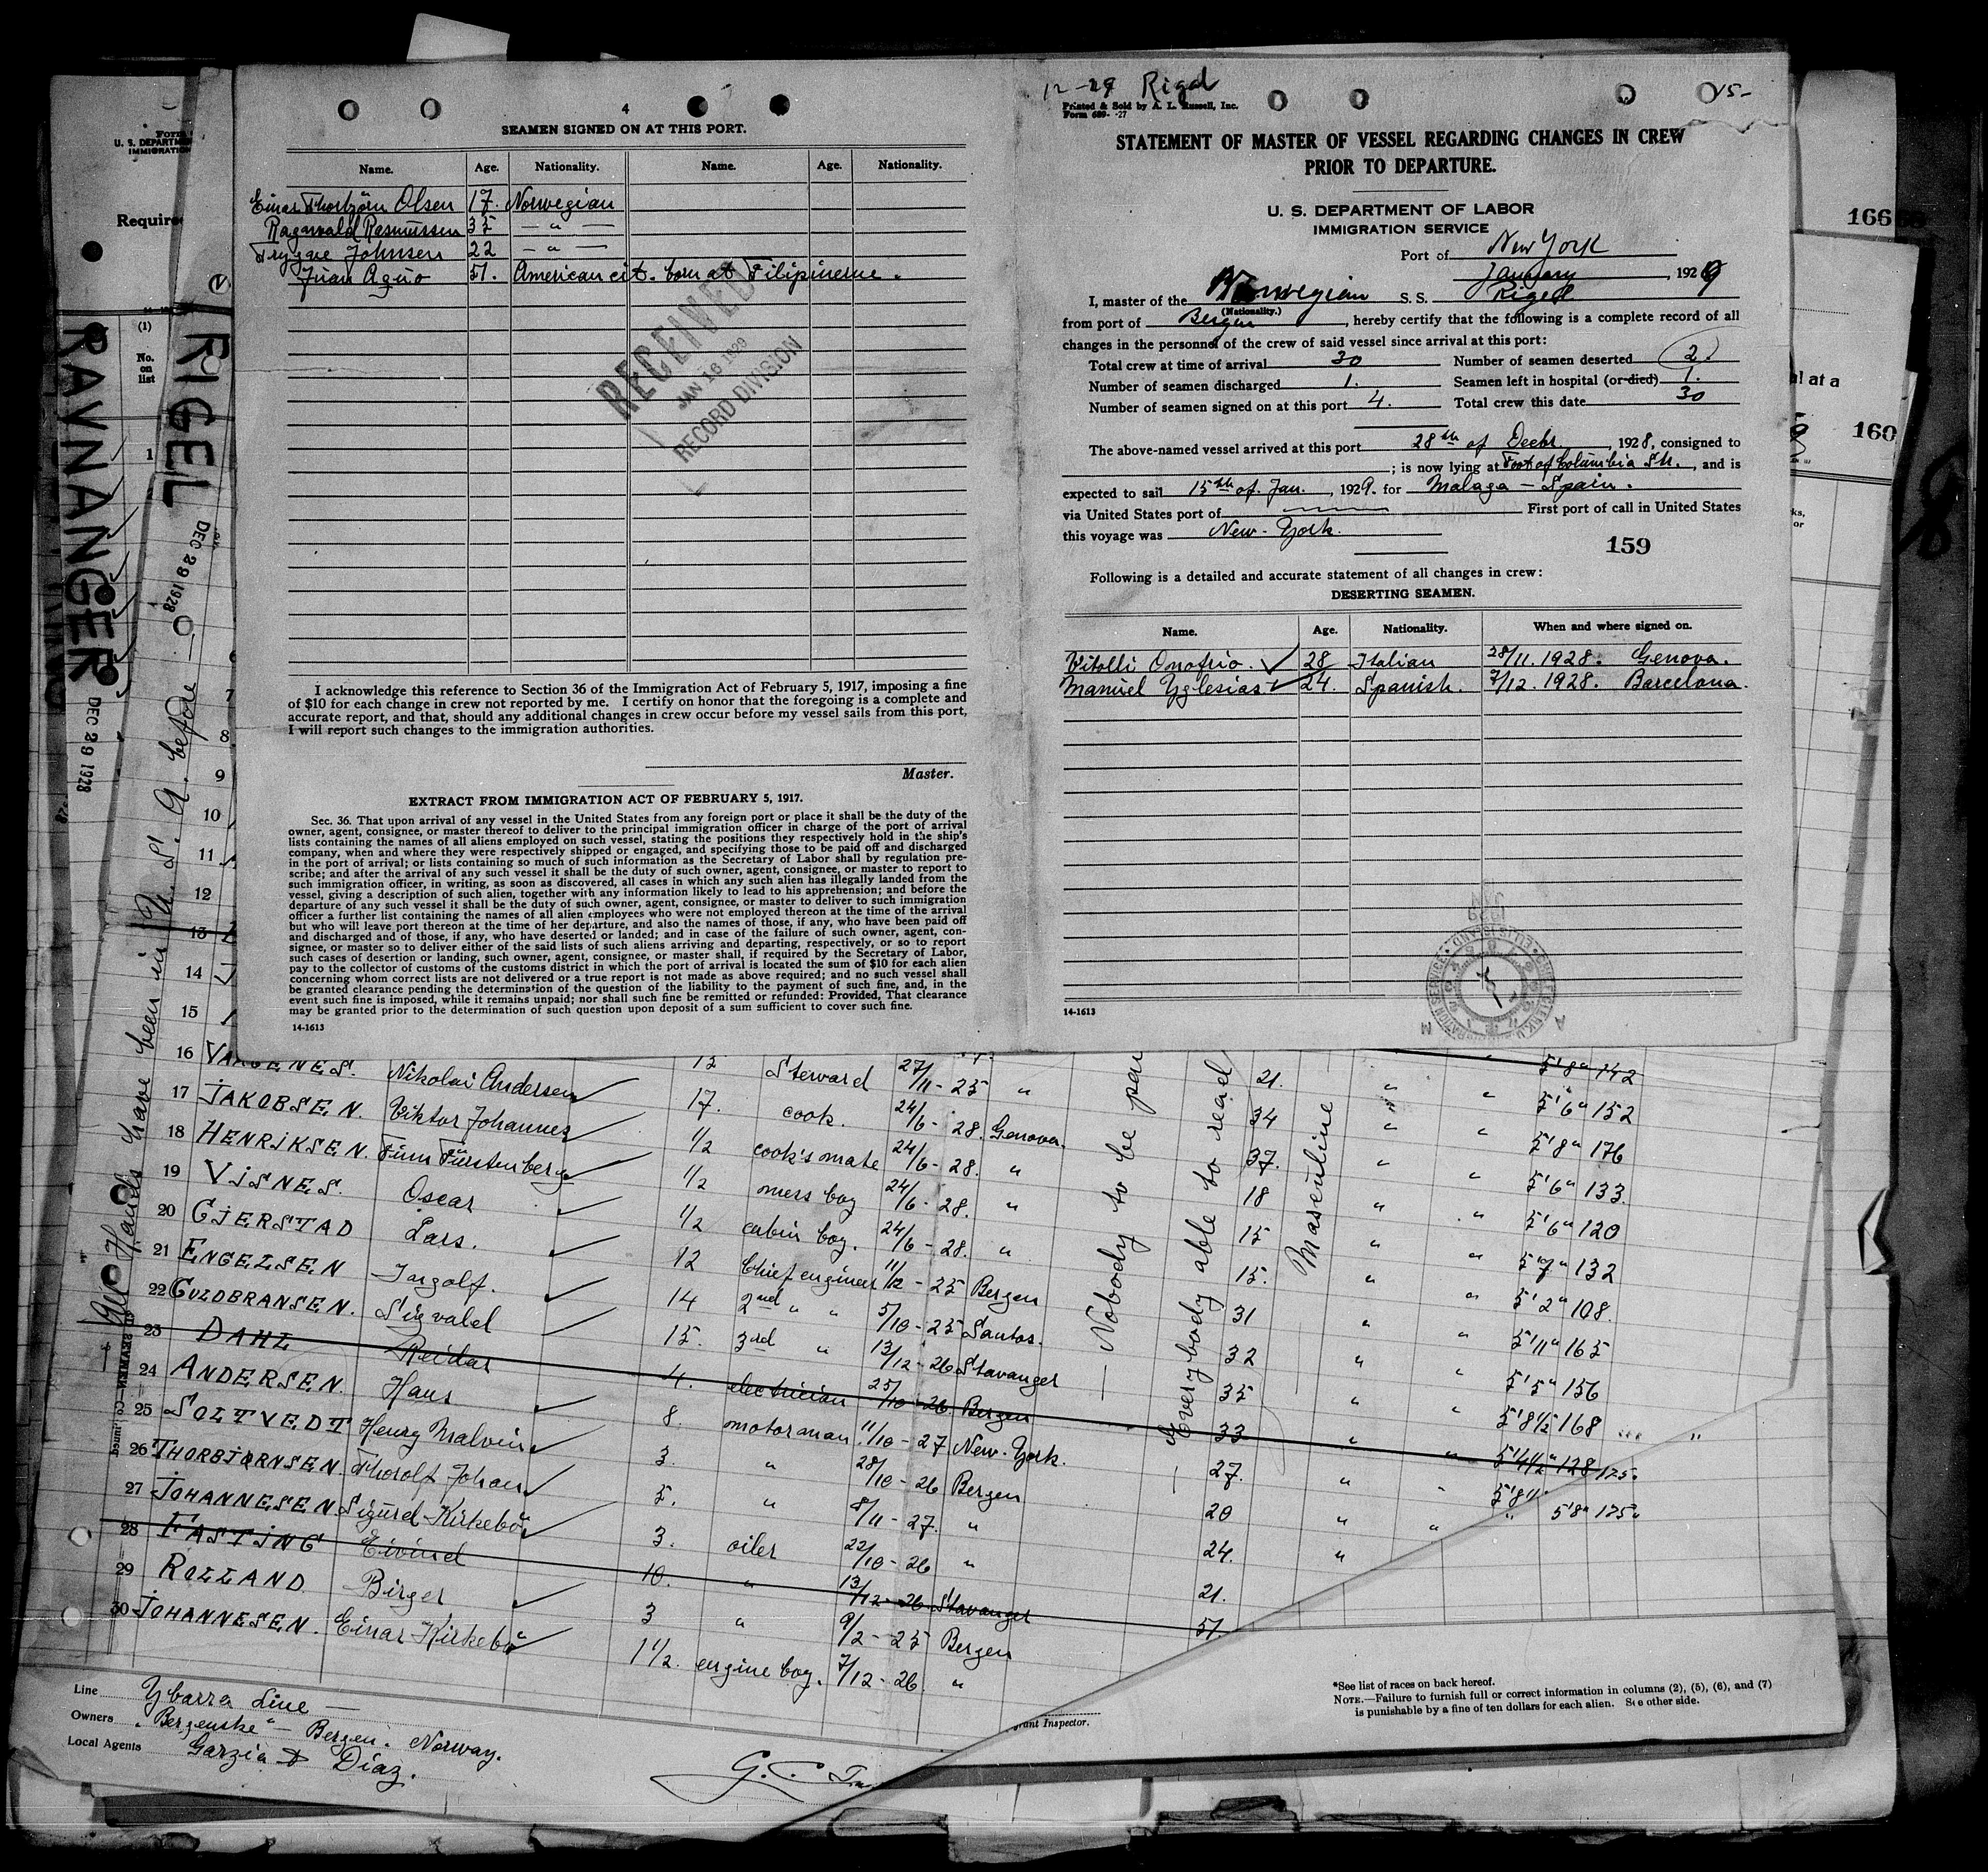 4
SEAMEN SIGNED ON AT THIS PORT.
Name. Age. Nationality. Name. Age. Nationality.
Einar Thorbjörn Olsen 17. Norwegian
Ragnvald Rasmussen 35 — " —
Trygve Johnsen 22 — " —
Juan Aguo 51. American cit. born at Filipinerne.
RECEIVED
JAN 16 1929
RECORD DIVISION
I acknowledge this reference to Section 36 of the Immigration Act of February 5, 1917, imposing a fine
of $10 for each change in crew not reported by me. I certify on honor that the foregoing is a complete and
accurate report, and that, should any additional changes in crew occur before my vessel sails from this port,
I will report such changes to the immigration authorities.
Master.
EXTRACT FROM IMMIGRATION ACT OF FEBRUARY 5, 1917.
Sec. 36. That upon arrival of any vessel in the United States from any foreign port or place it shall be the duty of the
owner, agent, consignee, or master thereof to deliver to the principal immigration officer in charge of the port of arrival
lists containing the names of all aliens employed on such vessel, stating the positions they respectively hold in the ship's
company, when and where they were respectively shipped or engaged, and specifying those to be paid off and discharged
in the port of arrival; or lists containing so much of such information as the Secretary of Labor shall by regulation pre-
scribe; and after the arrival of any such vessel it shall be the duty of such owner, agent, consignee, or master to report to
such immigration officer, in writing, as soon as discovered, all cases in which any such alien has illegally landed from the
vessel, giving a description of such alien, together with any information likely to lead to his apprehension; and before the
departure of any such vessel it shall be the duty of such owner, agent, consignee, or master to deliver to such immigration
officer a further list containing the names of all alien employees who were not employed thereon at the time of the arrival
but who will leave port thereon at the time of her departure, and also the names of those, if any, who have been paid off
and discharged and of those, if any, who have deserted or landed; and in case of the failure of such owner, agent, con-
signee, or master so to deliver either of the said lists of such aliens arriving and departing, respectively, or so to report
such cases of desertion or landing, such owner, agent, consignee, or master shall, if required by the Secretary of Labor,
pay to the collector of customs of the customs district in which the port of arrival is located the sum of $10 for each alien
concerning whom correct lists are not delivered or a true report is not made as above required; and no such vessel shall
be granted clearance pending the determination of the question of the liability to the payment of such fine, and, in the
event such fine is imposed, while it remains unpaid; nor shall such fine be remitted or refunded: Provided, That clearance
may be granted prior to the determination of such question upon deposit of a sum sufficient to cover such fine.
14-1613
12-29 Rigel
15-
Printed & Sold by A. L. Russell, Inc.
Form 689- -27
STATEMENT OF MASTER OF VESSEL REGARDING CHANGES IN CREW
PRIOR TO DEPARTURE.
U. S. DEPARTMENT OF LABOR
IMMIGRATION SERVICE
Port of New York
January, 1929
I, master of the Norwegian S. S. Rigel
(Nationality.)
from port of Bergen, hereby certify that the following is a complete record of all
changes in the personnel of the crew of said vessel since arrival at this port:
Total crew at time of arrival 30 Number of seamen deserted 2.
Number of seamen discharged 1. Seamen left in hospital (or died) 1.
Number of seamen signed on at this port 4. Total crew this date 30
The above-named vessel arrived at this port 28th of Decbr., 1928, consigned to
; is now lying at Foot of Columbia Str., and is
expected to sail 15th of Jan., 1929. for Malaga - Spain.
via United States port of First port of call in United States
this voyage was New-York.
159
Following is a detailed and accurate statement of all changes in crew:
DESERTING SEAMEN.
Name. Age. Nationality. When and where signed on.
Vitolli Onofrio. 28 Italian 28/11. 1928. Genova.
Manuel Yglesias 24. Spanish. 7/12. 1928. Barcelona.
14-1613
166
160
U. S. DEPARTM
IMMIGRATION
Require
(1)
No.
on
list
1
RAVNANGER
DEC 29 1928
RIGEL
DEC 29 1928
All Hands have been in U. S. A. before —
7
8
9
10
11
12
13
14
15
16 Nikolai Andersen 15 Steward 27/11 - 25 " 21. " " 5'8" 142
17 JAKOBSEN. Viktor Johannes 17. cook. 24/6 - 28. Genova. 34 " " 5'6" 152
18 HENRIKSEN. Finn Fürstenberg 1/2 cook's mate 24/6 - 28. " 37. " " 5'8" 176
19 VISNES. Oscar 1/2 mess boy 24/6 - 28. " 18 " " 5'6" 133.
20 GJERSTAD Lars. 1/2 cabin boy. 24/6 - 28. " 15 " " 5'6" 120
21 ENGELSEN Ingolf. 12 Chief engineer 11/12 - 25 Bergen 15. " " 5'7" 132
22 GULDBRANSEN. Sigvald 14 2nd " " 5/10 - 25 Santos. 31 " " 5'2" 108.
23 DAHL Reidar 15. 3rd " 13/12 - 26 Stavanger 32 " " 5'11" 165
24 ANDERSEN. Hans 4. electrician 25/10 - 26. Bergen 35 " " 5'5" 156
25 SOLTVEDT Henry Malvin 8. motorman 11/10 - 27. New-York. 33 " " 5'8 1/2" 168
26 THORBJØRNSEN. Thorolf Johan 3. " 28/10 - 26 Bergen 27. " " 5'4 1/2" 128
27 JOHANNESEN Sigurd Kirkebö 5. " 8/11 - 27. " 20 " " 5'8" 175
28 FASTING Eivind 3. oiler 22/10 - 26 " 24. "
29 ROLLAND Birger 10. " 13/12 - 26. Stavanger 21.
30 JOHANNESEN. Einar Kirkebö 3 " 9/2 - 25 Bergen 51.
1 1/2. engine boy. 7/12 - 26. "
— Nobody to be pai
— Everybody able to read
Masculine
Line Ybarra Line —
Owners „Bergenske" - Bergen. Norway.
Local Agents Garzia & Diaz.
grant Inspector.
*See list of races on back hereof.
NOTE.—Failure to furnish full or correct information in columns (2), (5), (6), and (7)
is punishable by a fine of ten dollars for each alien. See other side.